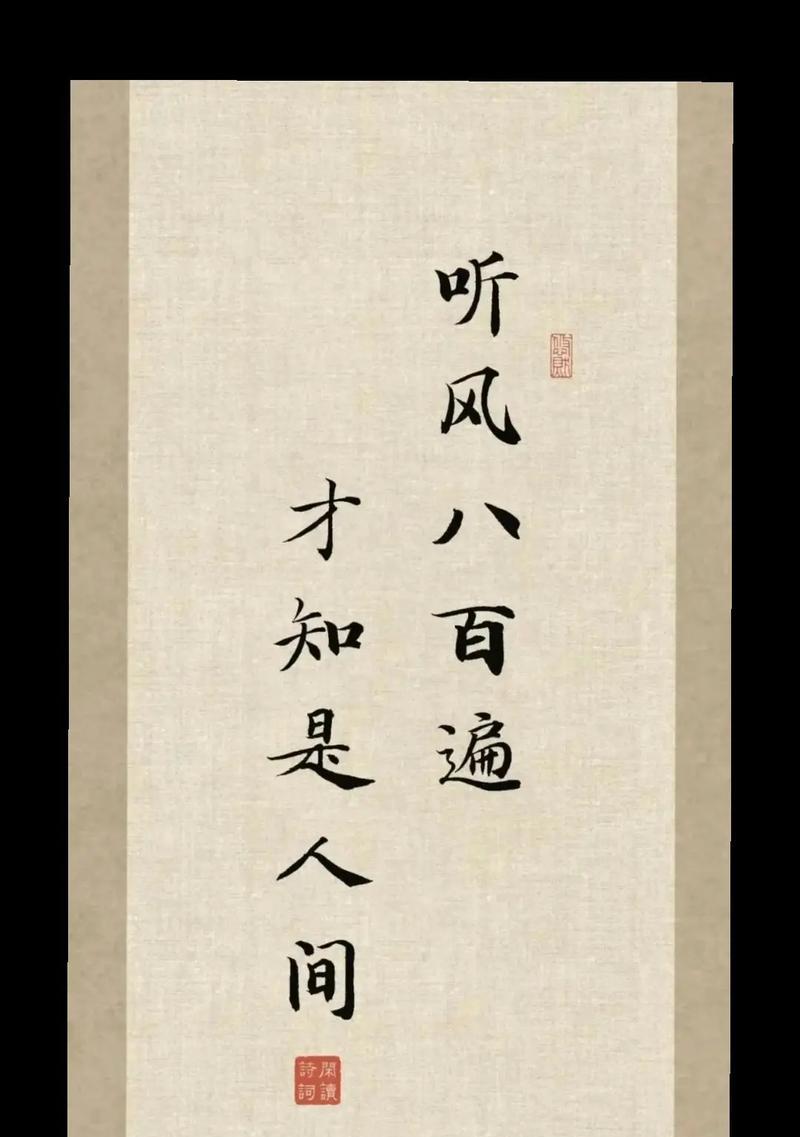 听风八百遍
才知是人间
閑讀
詩詞